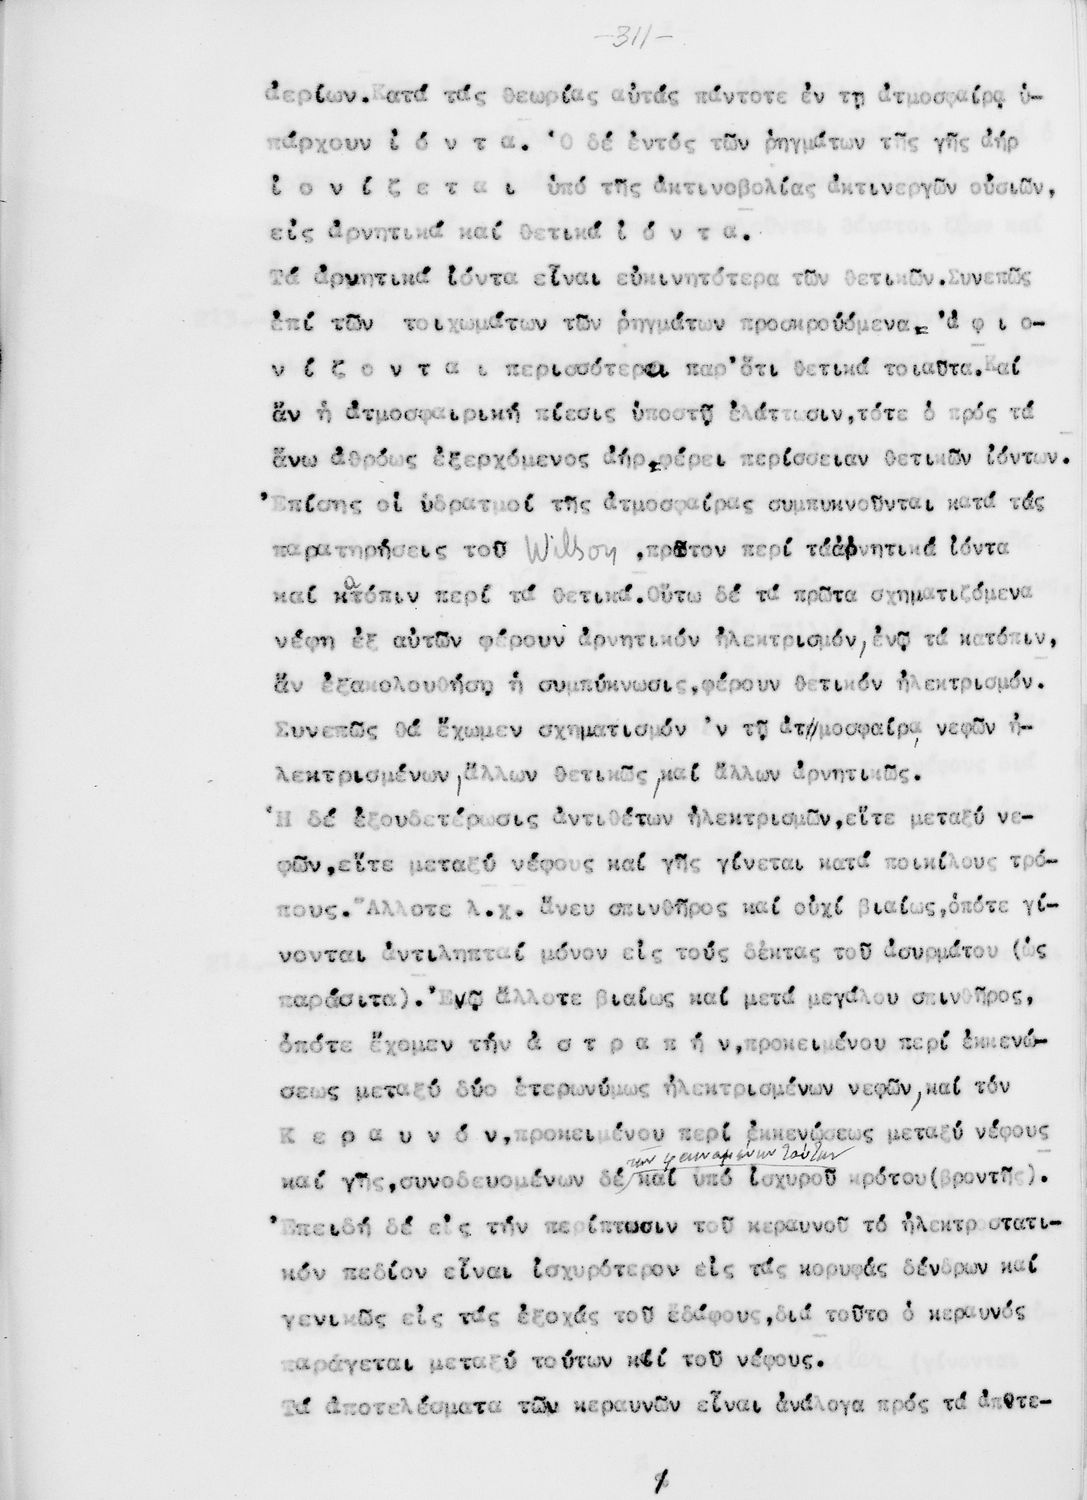 -311-
ἀερίων.Κατά τάς θεωρίας αὐτάς πάντοτε ἐν τῃ ἀτμοσφαίρᾳ ὑ-
πάρχουν ἰ ό ν τ α. Ὁ δέ ἐντός τῶν ῥηγμάτων τῆς γῆς ἀήρ
ἰ ο ν ί ζ ε τ α ι ὑπό τῆς ἀκτινοβολίας ἀκτινεργῶν οὐσιῶν,
εἰς ἀρνητικά καί θετικά ἰ ό ν τ α.
Τά ἀρνητικά ἰόντα εἶναι εὐκινητότερα τῶν θετικῶν.Συνεπῶς
ἐπί τῶν τοιχωμάτων τῶν ῥηγμάτων προσκρούόμενα, ἀ φ ι ο-
ν ί ζ ο ν τ α ι περισσότεραι παρ'ὅτι θετικά τοιαῦτα.Καί
ἄν ἡ ἀτμοσφαιρική πίεσις ὑποστῇ ἐλάττωσιν,τότε ὁ πρός τά
ἄνω ἀθρόως ἐξερχόμενος ἀήρ,φέρει περίσσειαν θετικῶν ἰόντων.
Ἐπίσης οἱ ὑδρατμοί τῆς ἀτμοσφαίρας συμπυκνοῦνται κατά τάς
παρατηρήσεις τοῦ Wilson ,πρῶτον περί τάἀρνητικά ἰόντα
καί κατόπιν περί τά θετικά.Οὕτω δέ τά πρῶτα σχηματιζόμενα
νέφη ἐξ αὐτῶν φέρουν ἀρνητικόν ἠλεκτρισμόν,ἐνῷ τά κατόπιν,
ἄν ἐξακολουθήσῃ ἡ συμπύκνωσις,φέρουν θετικόν ἠλεκτρισμόν.
Συνεπῶς θά ἔχωμεν σχηματισμόν 'ν τῇ ἀτμοσφαίρᾳ, νεφῶν ἠ-
λεκτρισμένων,ἄλλων θετικῶς,καί ἄλλων ἀρνητικῶς.
Ἡ δέ ἐξουδετέρωσις ἀντιθέτων ἠλεκτρισμῶν,εἴτε μεταξύ νε-
φῶν,εἴτε μεταξύ νέφους καί γῆς γίνεται κατά ποικίλους τρό-
πους.Ἄλλοτε λ.χ. ἄνευ σπινθῆρος καί οὐχί βιαίως,ὁπότε γί-
νονται ἀντιληπταί μόνον εἰς τούς δέκτας τοῦ ἀσυρμάτου (ὡς
παράσιτα).Ἐνῷ ἄλλοτε βιαίως καί μετά μεγάλου σπινθῆρος,
ὁπότε ἔχομεν τήν ἀ σ τ ρ α π ή ν,προκειμένου περί ἐκκενώ-
σεως μεταξύ δύο ἑτερωνύμως ἠλεκτρισμένων νεφῶν,καί τόν
Κ ε ρ α υ ν ό ν,προκειμένου περί ἐκκενώσεως μεταξύ νέφους
τῶν φαινομένων τούτων
καί γῆς,συνοδευομένων δέ καί ὑπό ἰσχυροῦ κρότου(βροντῆς).
Ἐπειδή δέ εἰς τήν περίπτωσιν τοῦ κεραυνοῦ τό ἠλεκτροστατι-
κόν πεδίον εἶναι ἰσχυρότερον εἰς τάς κορυφάς δένδρων καί
γενικῶς εἰς τάς ἐξοχάς τοῦ ἐδάφους,διά τοῦτο ὁ κεραυνός
παράγεται μεταξύ τούτων καί τοῦ νέφους.
Τά ἀποτελέσματα τῶν κεραυνῶν εἶναι ἀνάλογα πρός τά ἀποτε-